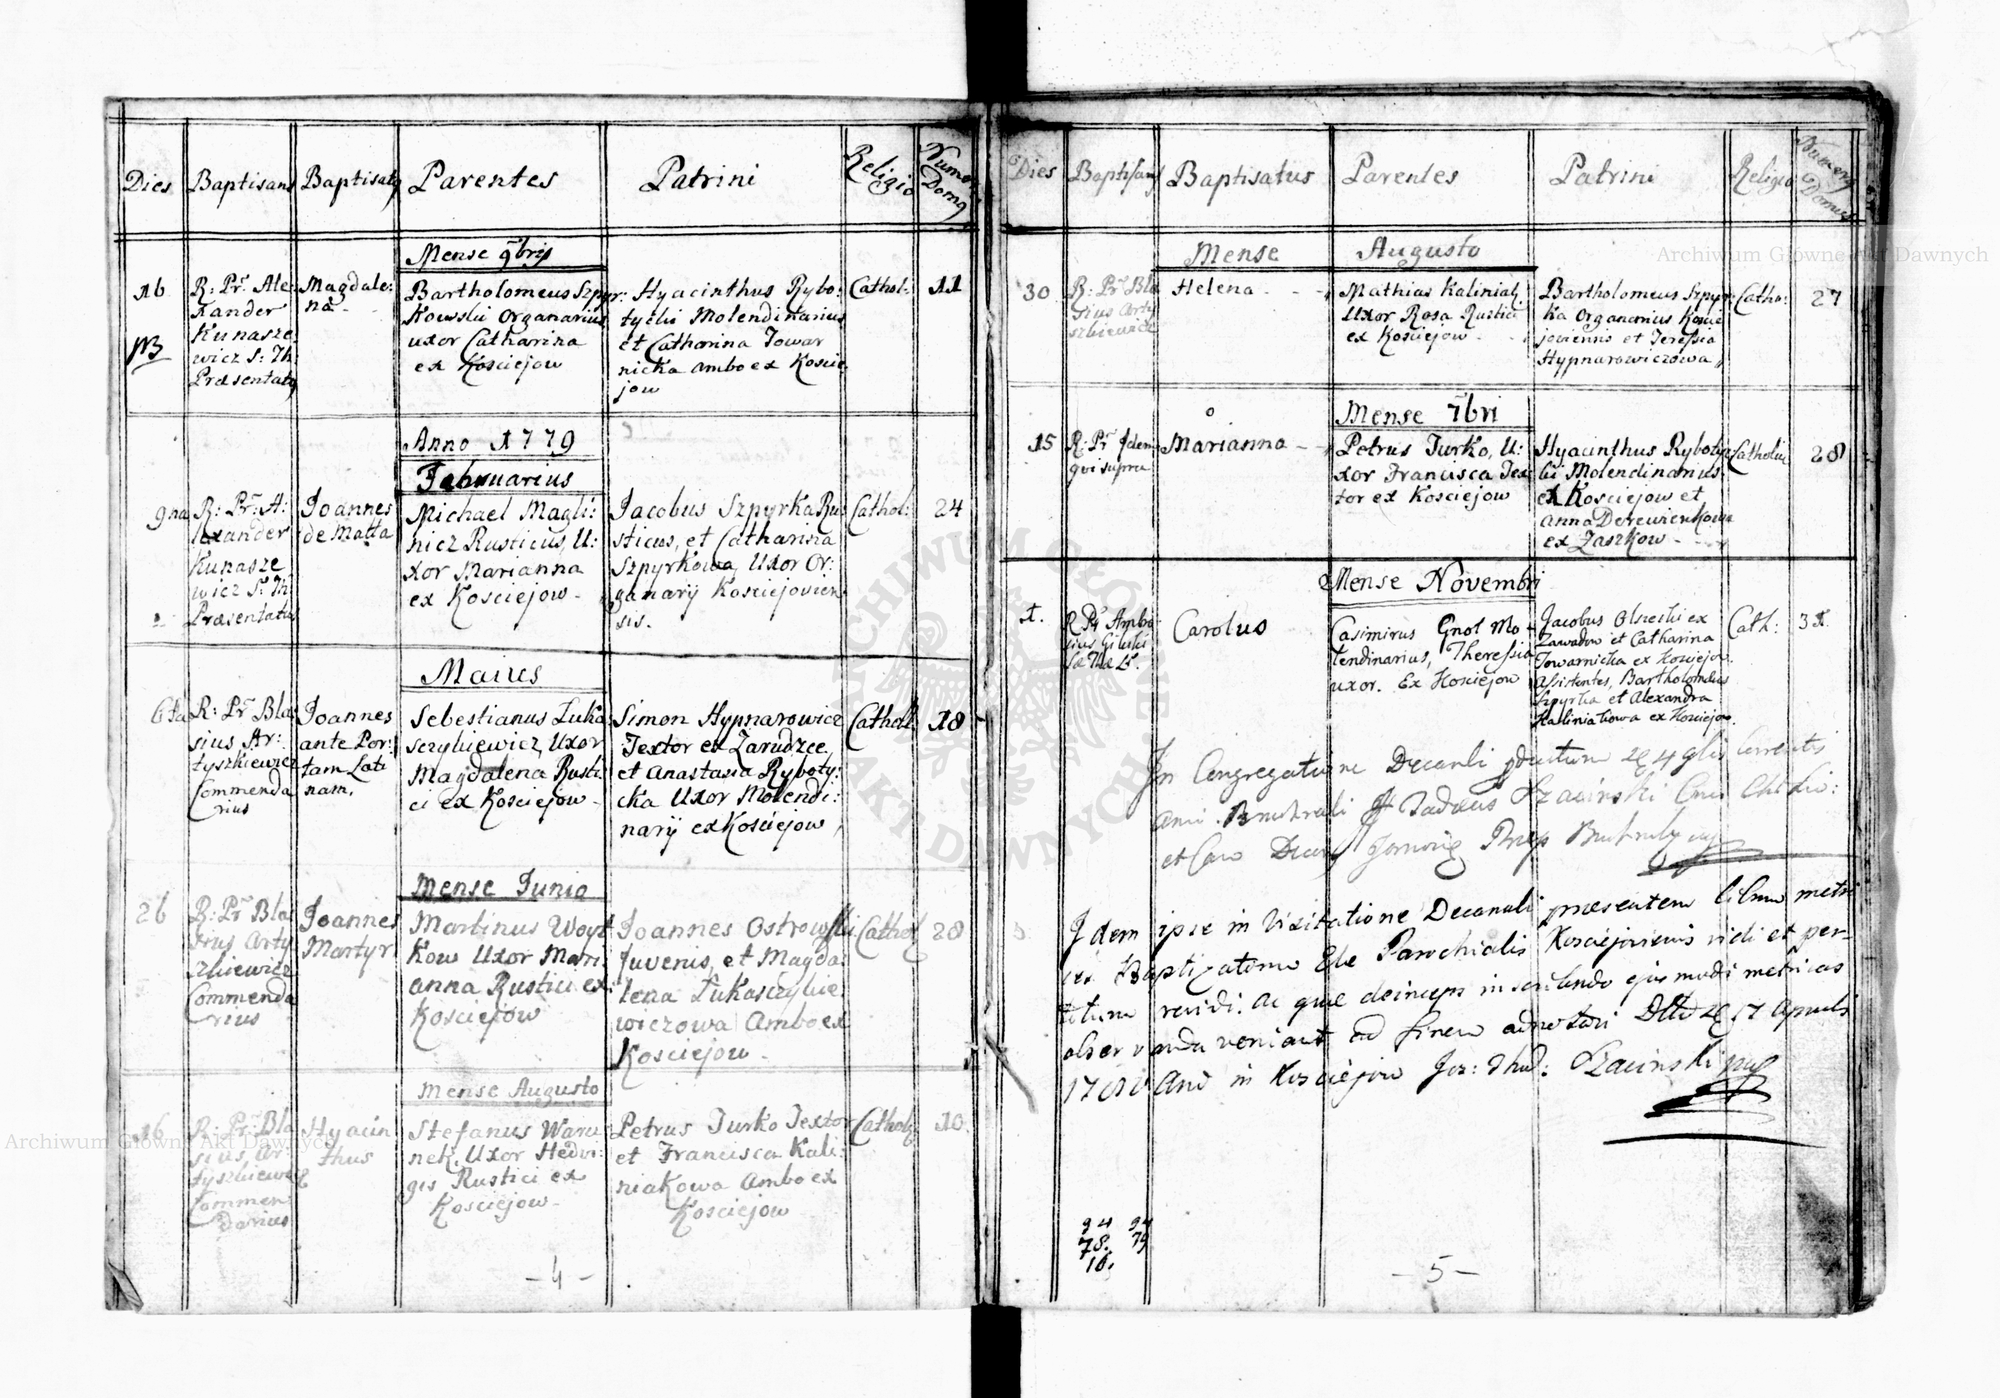 Dies Baptisans Baptisatus Parentes Patrini Religio Numerus Domus
Mense 9bris
16
NB
R: Pr. Ale
xander
Kunasze
wicz S: Th:
Præsentatus
Magdale:
na
Bartholomeus Szpyr:
kowski Organarius
uxor Catharina
ex Kosciejow
Hyacinthus Rybo:
tycki Molendinarius
et Catharina Towar
nicka ambo ex Koscie
jow
Cathol:
11
Anno 1779
Februarius
9na
R: Pr: A:
lexander
Kunasze
wicz S: Th:
Præsentatus
Joannes
de Matta
Michael Magli:
nicz Rusticus, U:
xor Marianna
ex Kosciejow
Jacobus Szpyrka Rus
sticus, et Catharina
Szpyrkowa, Uxor Or:
ganarij Kosciejovien
sis.
Cathol:
24
Maius
6ta
R: Pr: Bla
sius Ar:
tyszkiewicz
Commenda
rius
Joannes
ante Por:
tam Lati
nam.
Sebestianus Luka
sczykiewicz, Uxor
Magdalena Rusti
ci ex Kosciejow
Simon Hypnarowicz
Textor ex Zarudzce,
et Anastasia Ryboty:
cka Uxor Molendi:
narij ex Kosciejow,
Cathol:
18
Mense Junio
26
R: Pr: Bla
sius Arty
szkiewicz
Commenda
rius
Joannes
Martyr
Martinus Woyt
Kow Uxor Mari
anna Rustici ex
Kosciejow
Joannes Ostrowski
Juvenis, et Magda
lena Lukasczykie
wiczowa Ambo ex
Kosciejow
Cathol:
28
Mense Augusto
16
R: Pr: Bla
sius, Ar:
tyszkiewicz
Commen
darius
Hyacin
thus
Stefanus Waru
nek, Uxor Hedwi
gis Rustici ex
Kosciejow
Petrus Turko Textor
et Francisca Kali:
niakowa Ambo ex
Kosciejow
Cathol:
10
- 4 -
Dies Baptisans Baptisatus Parentes Patrini Religio Numerus Domus
Mense Augusto
30
R: Pr: Bla
sius Arty
szkiewicz
Helena
Mathias Kaliniak,
Uxor Rosa Rustici
ex Kosciejow
Bartholomeus Szpyr
ka Organarius Koscie
joviensis et Teressia
Hypnarowiczowa,
Catho:
27
Mense 7bri
15
R: Pr: Idem
qui supra
Marianna
Petrus Turko, U:
xor Francisca Tex
tor ex Kosciejow
Hyacinthus Rybotyc
ki Molendinarius
ex Kosciejow et
Anna Derewienkowa
ex Zaszkow
Catholic
28
Mense Novembri
1.
Carolus
Casimirus Gnot Mo
lendinarius, Theressia
uxor. Ex Kosciejow
Jacobus Olszeski ex
Zawadow et Catharina
Towarnicka ex Kosciejow.
Assistentes, Bartholomeus
Szpyrka et Alexandra
Kaliniakowa ex Kosciejow.
Cath:
31.
In Congregatione Decanali
Idem ipse in Visitatione Decanali præsentem librum metri
ces Baptizatorum Parochialis Kosciejoviensis vidi et per-
ac quæ deinceps in ejusmodi metricas
observanda veniant ad finem adnotavi 17 Aprilis
in Kosciejow
94 94
78. 79
16.
- 5 -
Archiwum Główne Akt Dawnych
Archiwum Główne Akt Dawnych
ARCHIWUM GŁÓWNE AKT DAWNYCH